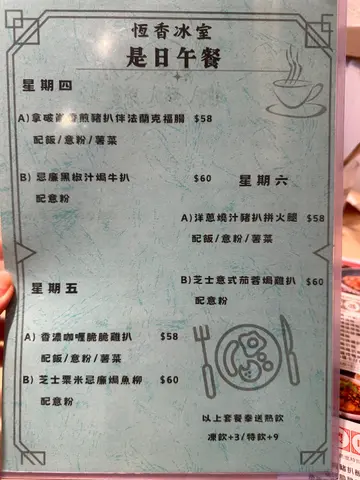 恆香冰室
是日午餐
星期四
A)拿破崙香煎豬扒伴法蘭克福腸 $58
配飯/意粉/薯菜
B) 忌廉黑椒汁焗牛扒 $60
配意粉
星期六
A)洋蔥燒汁豬扒拼火腿 $58
配飯/意粉/薯菜
B)芝士意式茄蓉焗雞扒 $60
配意粉
星期五
A) 香濃咖喱脆脆雞扒 $58
配飯/意粉/薯菜
B) 芝士粟米忌廉焗魚柳 $60
配意粉
以上套餐奉送熱飲
凍飲+3/特飲+9